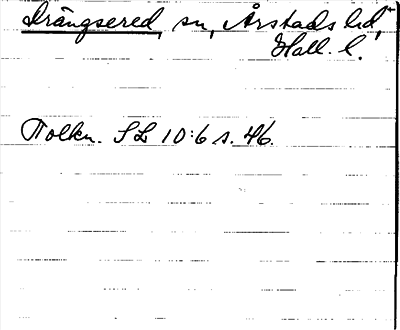 Drängsered, sn, Årstads hd,
Hall. l.
Tolkn. SL 10:6 s. 46.